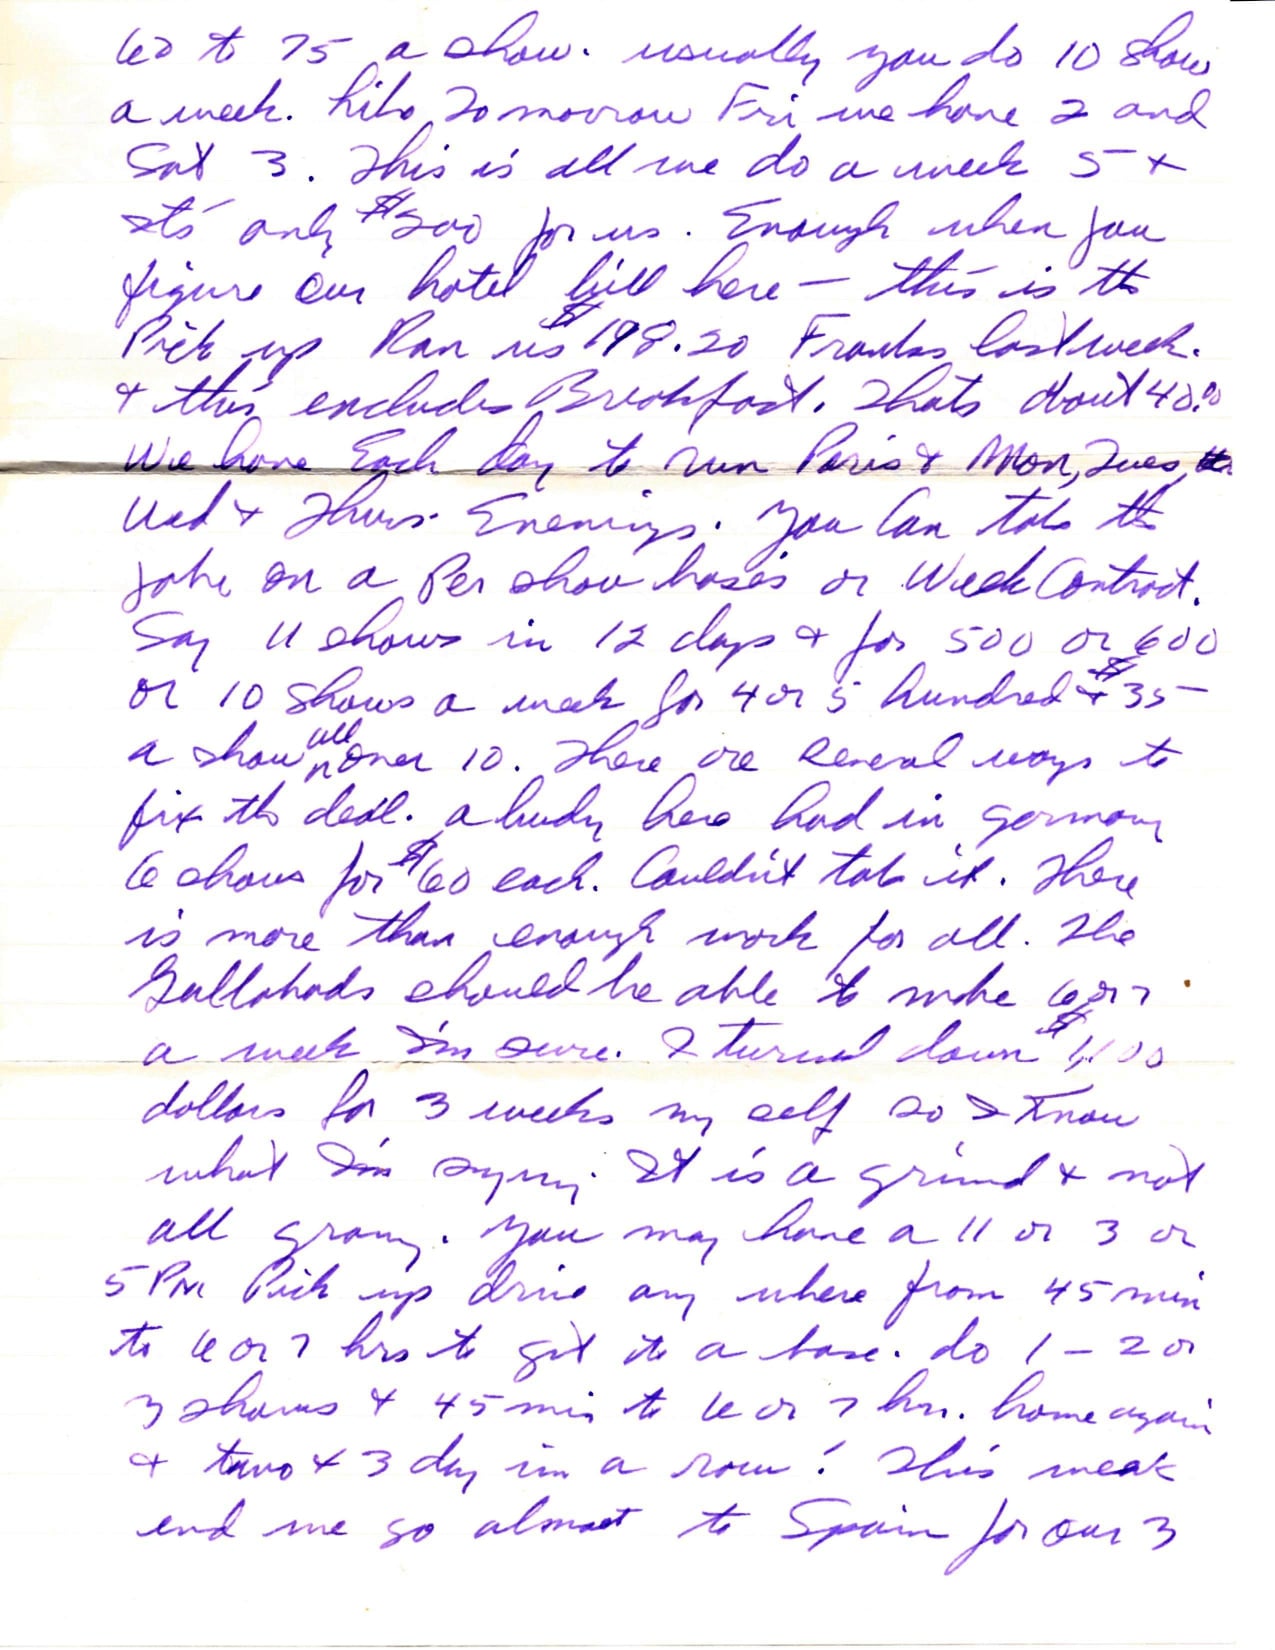 60 to 75 a show. usually you do 10 show
a week. Like Tomorrow Fri we have 2 and
Sat 3. This is all we do a week 5 +
its only $200 for us. Enough when you
figure our hotel bill here — this is the
Pick up Ran us $198.20 Franks last week.
+ this encludes Breakfast. Thats about 40.00
We have Each day to run Paris + Mon, Tues,
Wed + Thurs. Evenings. You Can take the
jobs on a Per show bases or Week Contract.
Say 11 shows in 12 days + for 500 or 600
or 10 shows a week for 4 or 5 hundred + $35
a show all over 10. There are several ways to
fix the deal. a budy here had in germany
6 shows for $60 each. Couldn't take it. There
is more than enough work for all. The
Gallahads should be able to make 6 or 7
a week I'm sure. I turned down $1,100
dollars for 3 weeks my self so I Know
what I'm saying. It is a grind + not
all gravy. You may have a 11 or 3 or
5 PM Pick up drive any where from 45 min
to 6 or 7 hrs to get to a base. do 1 - 2 or
3 shows + 45 min to 6 or 7 hrs. home again
+ two + 3 day in a row! This weak
end we go almost to Spain for our 3